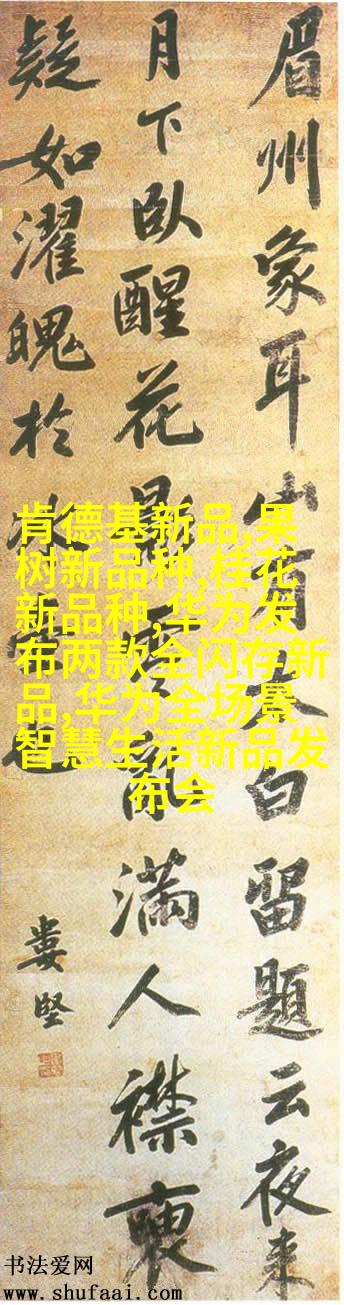 眉州象耳山有白留題云夜来
月下臥醒花影亂滿人襟
疑如濯魄於也
婁堅
肯德基新品,果
树新品种,桂花
新品种,华为发
布两款全闪存新
品,华为全场景
智慧生活新品发
布会
书法爱网
www.shufaai.com